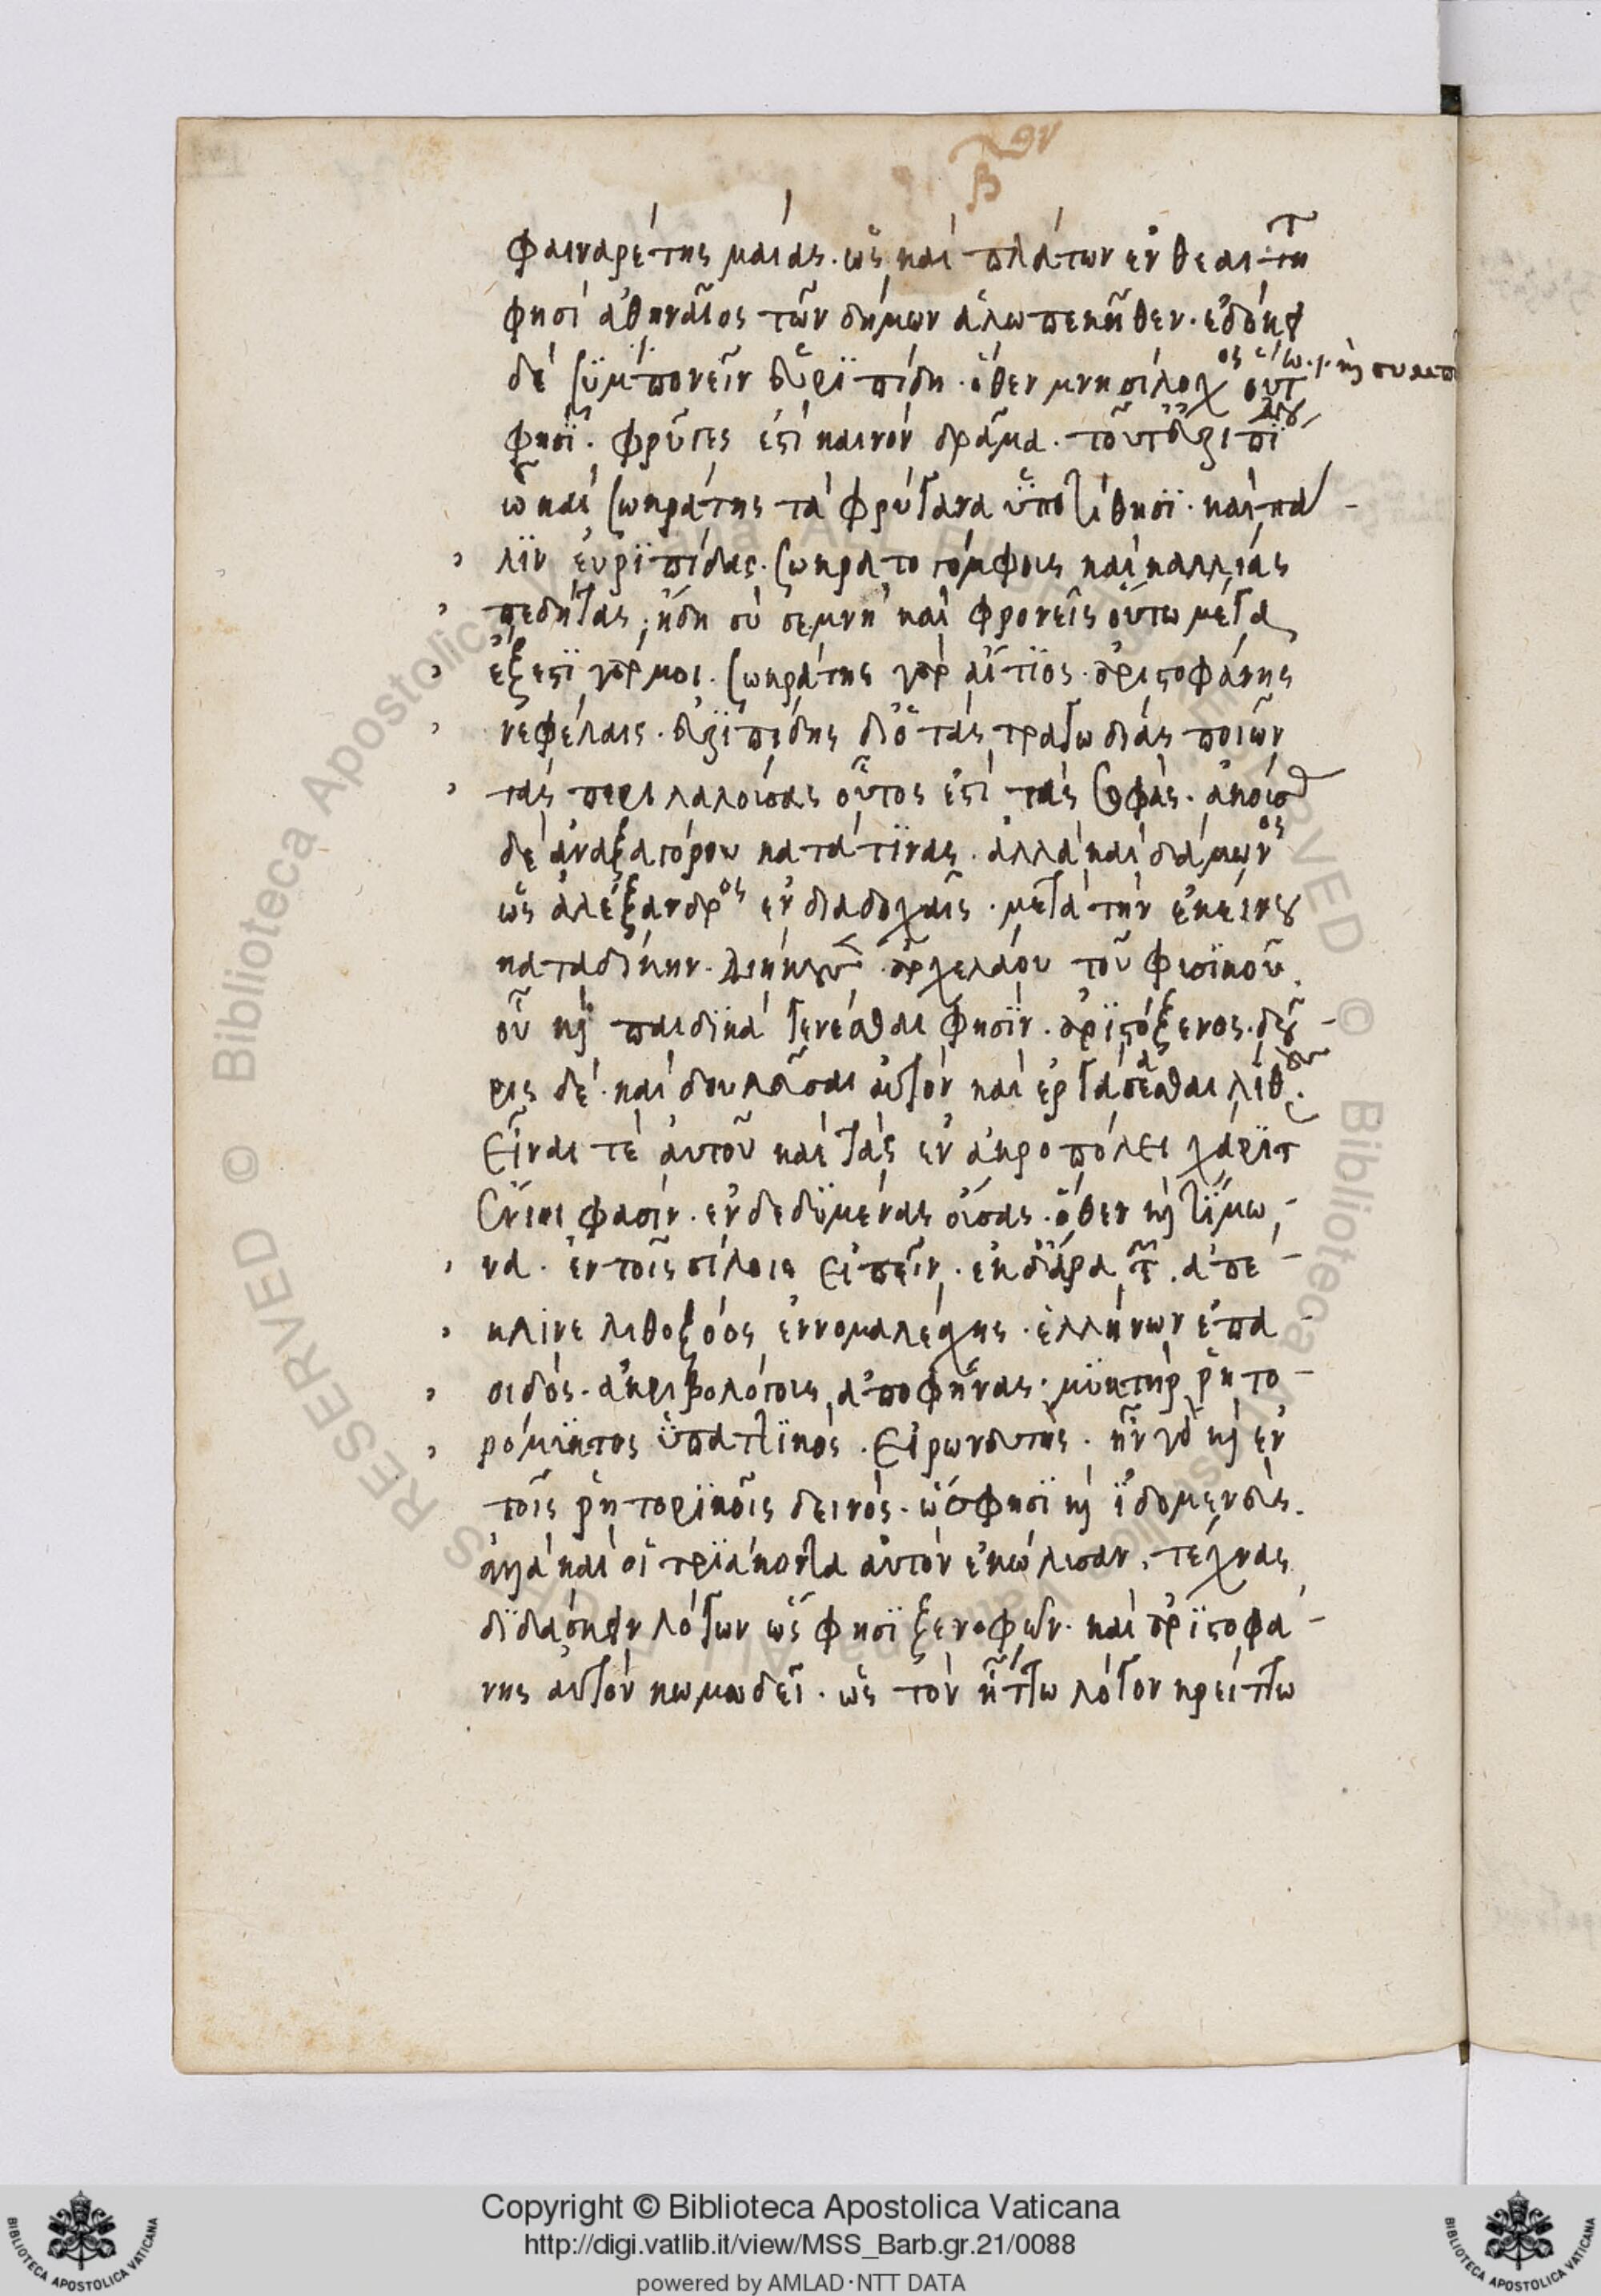 β ον
φαιναρέτης μαίας. ὡς καὶ πλάτων ἐν θεαιτή τ
φησὶ ἀθηναῖος τῶν δήμων ἀλωπεκῆθεν. ἐδόκει
δὲ συμπονεῖν εὐριπίδη. ὅθεν μνησίλοχ οὑτ
φησΐ. φρύγες ἐστὶ καινὸν δρᾶμα. τοῦτ εὐριπί
ὦ καὶ σωκράτης τὰ φρύγανα ὑποτίθησϊ. καὶ πα
λϊν εὐρϊπίδας. σωκρατογόμφοις καὶ καλλίας
πεδήτας, ἤδη σὺ σεμνὴ καὶ φρονεῖς οὕτω μέγα
ἔξεστϊ γάρ μοι. σωκράτης γὰρ αἴτϊος. ἀριστοφάνης
νεφέλαις. εὐρϊπίδης δ' ὁ τὰς τραγωδίας ποιῶν
τὰς περιλαλούσας οὗτος ἐστὶ τὰς σοφάς. ἀκούσ
δὲ ἀναξαγόρου κατά τϊνας. ἀλλὰ καὶ δάμωνος
ὡς ἀλέξανδρος ἐν διαδοχαῖς. μετὰ τὴν ἐκείνου
καταδίκην. διήκουσ ἀρχελάου τοῦ φισϊκοῦ.
οὗ καὶ παιδϊκὰ γενέσθαι φησϊν. ἀρϊστόξενος. δοῦ
ρις δὲ καὶ δουλεῦσαι αὐτὸν καὶ ἐργάσασθαι λίθους.
εἶναι τὲ αὐτοῦ καὶ τὰς ἐν ἀκροπόλει χάρϊτ
ἔνιοι φασὶν. ἐνδεδϋμένας οὔσας. ὅθεν καὶ τίμω
να. ἐν τοῖς σίλοις εἰπεῖν. ἐκ δ' ἄρα τ. ἀπέ
κλινε λιθοξόος ἐννομολέσχης. ἑλλήνων ἐπα
οιδός. ἀκριβολόγοις ἀποφήνας. μϋκτὴρ ῥητο
ρόμϊκτος ὑπαττϊκός. εἰρωνευτής. ἦν γὰρ καὶ ἐν
τοῖς ῥητορϊκοῖς δεινός. ὥς φησϊ καὶ ἰδομενεύς.
ἀλλὰ καὶ οἱ τρϊάκοντα αὐτὸν ἐκώλισαν. τέχνας
δϊδάσκειν λόγων ὥς φησϊ ξενοφῶν. καὶ ἀρϊστοφά
νης αὐτὸν κωμωδεῖ. ὡς τὸν ἥττω λόγον κρείττω
© Biblioteca Apostolica Vaticana ALL RIGHTS RESERVED
Copyright © Biblioteca Apostolica Vaticana
http://digi.vatlib.it/view/MSS_Barb.gr.21/0088
powered by AMLAD·NTT DATA
BIBLIOTECA APOSTOLICA VATICANA
BIBLIOTECA APOSTOLICA VATICANA